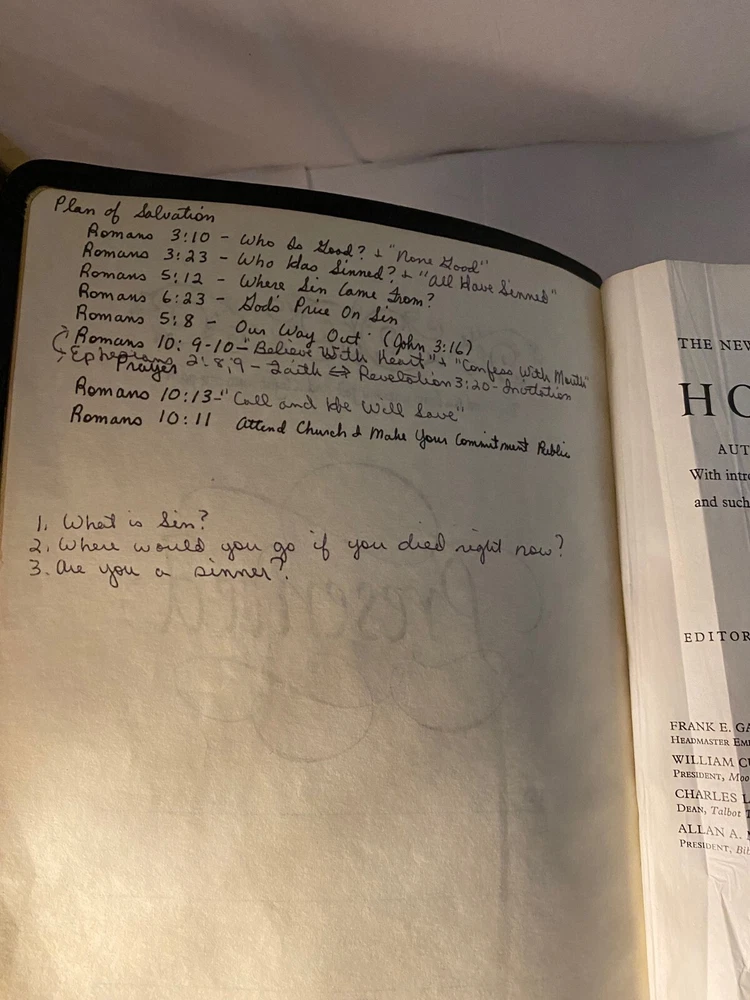 Plan of Salvation
Romans 3:10 - Who Is Good? + "None Good"
Romans 3:23 - Who Has Sinned? + "All Have Sinned"
Romans 5:12 - Where Sin Came From?
Romans 6:23 - God's Price On Sin
Romans 5:8 - Our Way Out (John 3:16)
Romans 10:9-10 - "Believe With Heart" + "Confess With Mouth"
Ephesians 2:8,9 - Faith ⇔ Revelation 3:20 - Invitation
Prayer
Romans 10:13 - "Call and He Will Save"
Romans 10:11 Attend Church & Make Your Commitment Public
1. What is Sin?
2. Where would you go if you died right now?
3. Are you a sinner?
Presented
THE NEW
HO
AUT
With intro
and such
EDITOR
FRANK E. GA
HEADMASTER EME
WILLIAM CU
PRESIDENT, Moo
CHARLES L
DEAN, Talbot T
ALLAN A. M
PRESIDENT, Bib